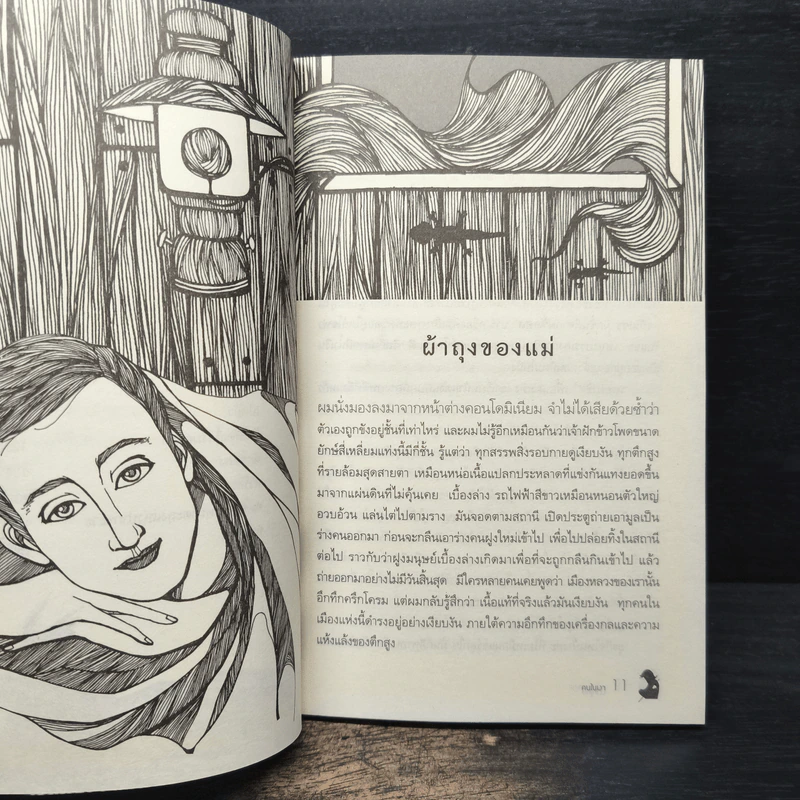 ผ้าถุงของแม่
ผมนั่งมองลงมาจากหน้าต่างคอนโดมิเนียม จำไม่ได้เสียด้วยซ้ำว่า
ตัวเองถูกขังอยู่ชั้นที่เท่าไหร่ และผมไม่รู้อีกเหมือนกันว่าเจ้าฝักข้าวโพดขนาด
ยักษ์สี่เหลี่ยมแท่งนี้มีกี่ชั้น รู้แต่ว่า ทุกสรรพสิ่งรอบกายดูเงียบงัน ทุกตึกสูง
ที่รายล้อมสุดสายตา เหมือนหน่อเนื้อแปลกประหลาดที่แข่งกันแทงยอดขึ้น
มาจากแผ่นดินที่ไม่คุ้นเคย เบื้องล่าง รถไฟฟ้าสีขาวเหมือนหนอนตัวใหญ่
อวบอ้วน แล่นไต่ไปตามราง มันจอดตามสถานี เปิดประตูถ่ายเอามูลเป็น
ร่างคนออกมา ก่อนจะกลืนเอาร่างคนฝูงใหม่เข้าไป เพื่อไปปล่อยทิ้งในสถานี
ต่อไป ราวกับว่าฝูงมนุษย์เบื้องล่างเกิดมาเพื่อที่จะถูกกลืนกินเข้าไป แล้ว
ถ่ายออกมาอย่างไม่มีวันสิ้นสุด มีใครหลายคนเคยพูดว่า เมืองหลวงของเรานั้น
อึกทึกครึกโครม แต่ผมกลับรู้สึกว่า เนื้อแท้ที่จริงแล้วมันเงียบงัน ทุกคนใน
เมืองแห่งนี้ดำรงอยู่อย่างเงียบงัน ภายใต้ความอึกทึกของเครื่องกลและความ
แห้งแล้งของตึกสูง
คนในเงา 11